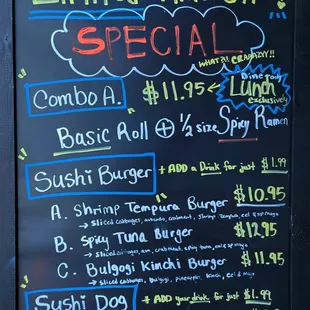 SPECIAL
WHAT?! CRAAAZY!!
Combo A. $11.95 ← Dine today Lunch exclusively
Basic Roll + ½ size Spicy Ramen
Sushi Burger + ADD a Drink for just $1.99
A. Shrimp Tempura Burger $10.95
→ Sliced cabbages, avocado, crabmeat, shrimp tempura,
B. Spicy Tuna Burger $12.95
crabmeat, spicy tuna,
C. Bulgogi Kimchi Burger $11.95
→ Sliced cabbages, Bulgogi, pineapple, kimchi,
Sushi Dog + ADD your drink for just $1.99